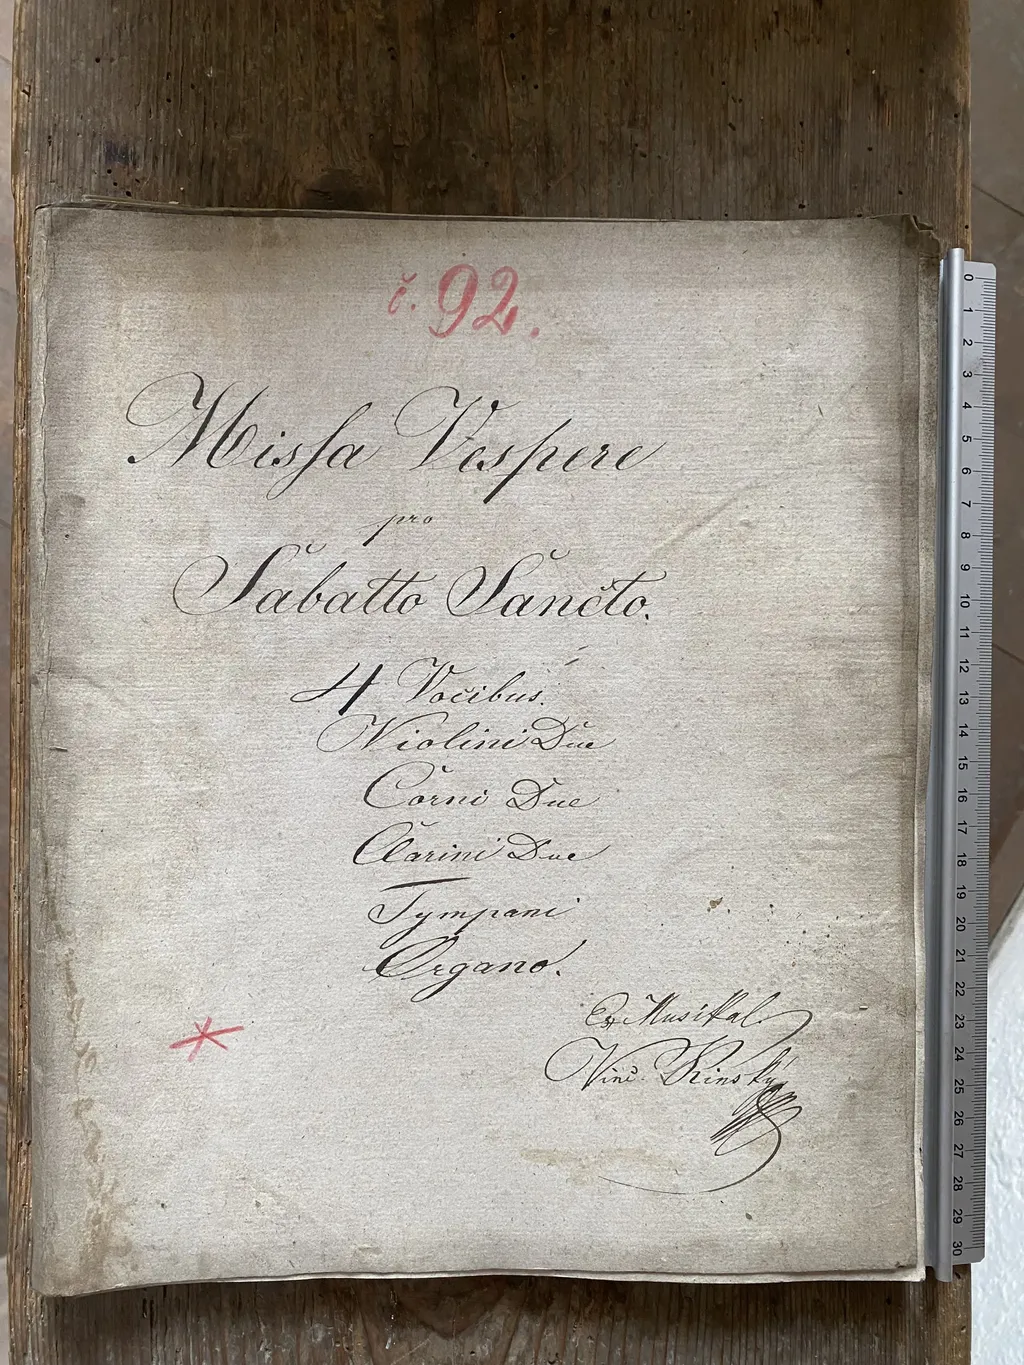 č. 92.
Missa Vespere
pro
Sabatto Sancto.
4 Vocibus.
Violini Due
Corni Due
Clarini Due
Tympani
Organo.
Ex Musikal.
Vinc. Kinský
0 1 2 3 4 5 6 7 8 9 10 11 12 13 14 15 16 17 18 19 20 21 22 23 24 25 26 27 28 29 30